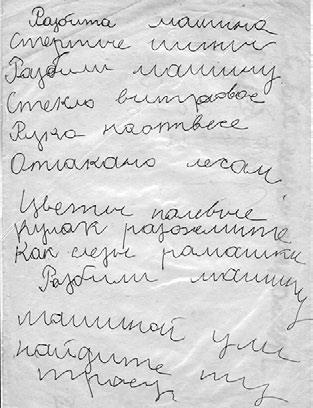 Разбита машина
Стертые шины
Разбили машину
Стекло витровое
Рука на отвесе
Отиакано лесам
Цветы полевые
кулак разожмите
Как слезы рамашки
Разбили машину
машиной ули
найдите ту
трассу